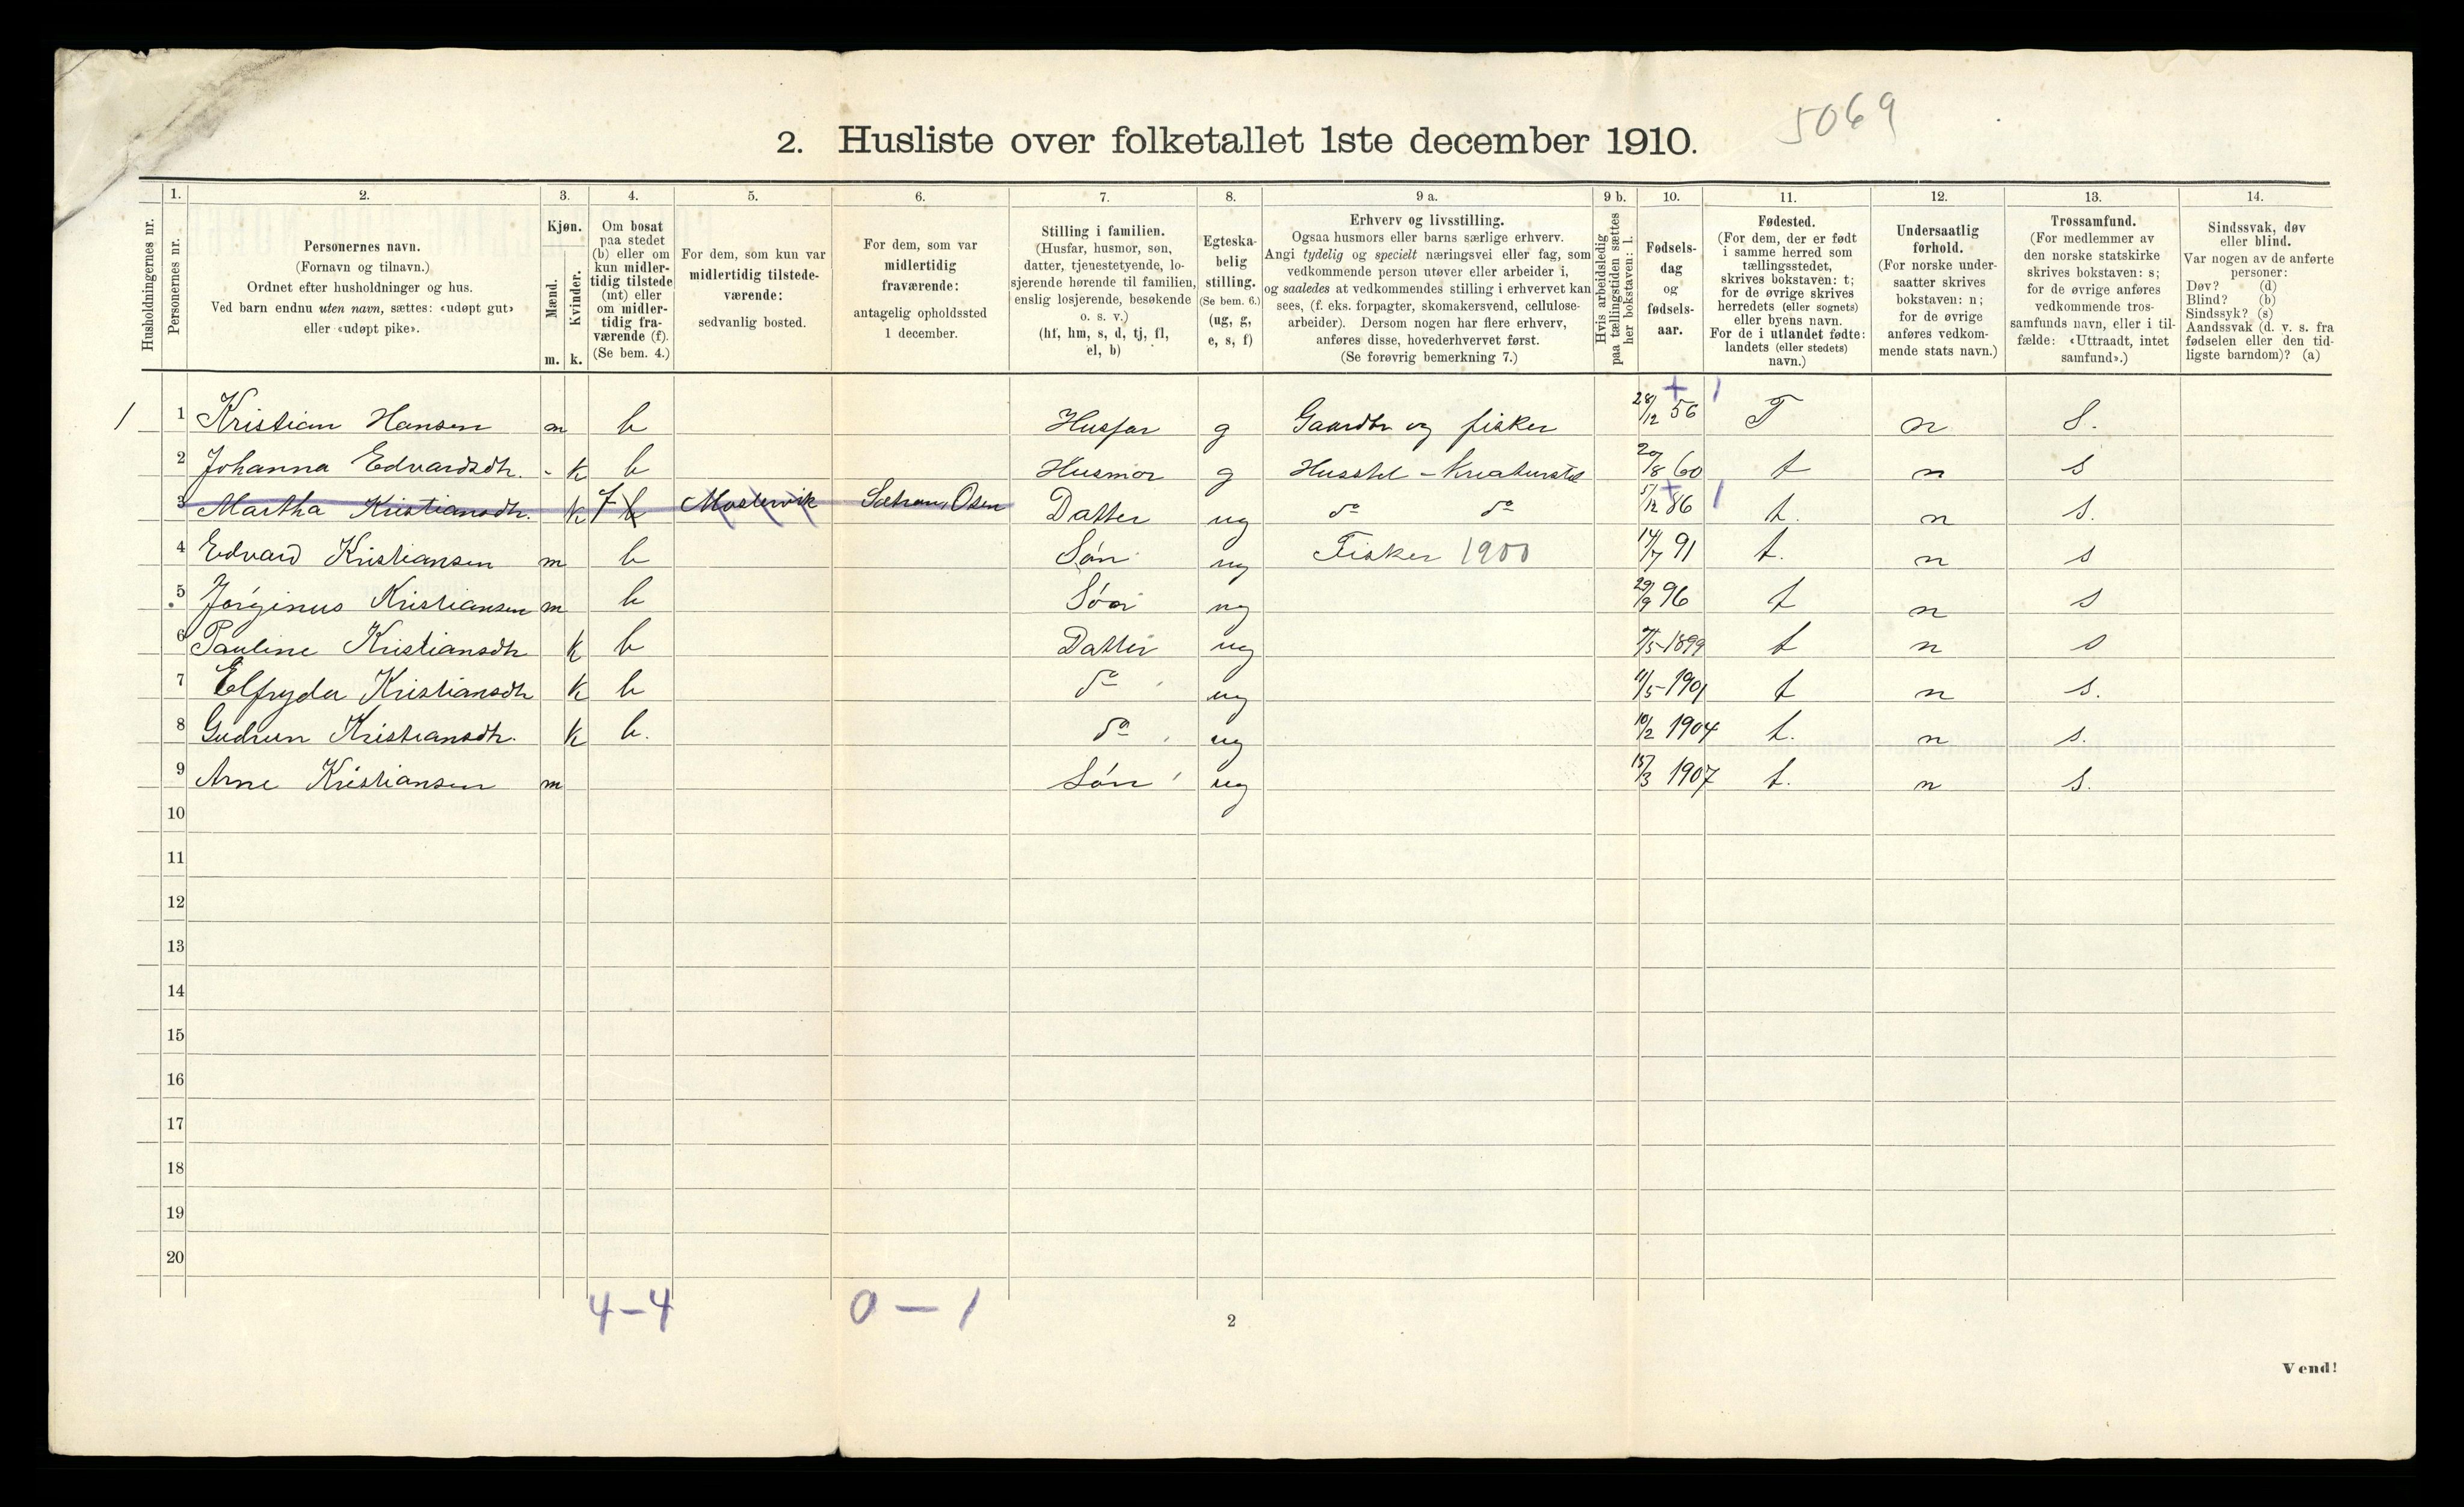 5069
2. Husliste over folketallet 1ste december 1910.
Husholdningernes nr.
1.
Personernes nr.
2.
Personernes navn.
(Fornavn og tilnavn.)
Ordnet efter husholdninger og hus.
Ved barn endnu uten navn, sættes: «udøpt gut»
eller «udøpt pike».
3.
Kjøn.
Mænd.
Kvinder.
m. k.
4.
Om bosat
paa stedet
(b) eller om
kun midler-
tidig tilstede
(mt) eller
om midler-
tidig fra-
værende (f).
(Se bem. 4.)
5.
For dem, som kun var
midlertidig tilstede-
værende:
sedvanlig bosted.
6.
For dem, som var
midlertidig
fraværende:
antagelig opholdssted
1 december.
7.
Stilling i familien.
(Husfar, husmor, søn,
datter, tjenestetyende, lo-
sjerende hørende til familien,
enslig losjerende, besøkende
o. s. v.)
(hf, hm, s, d, tj, fl,
el, b)
8.
Egteska-
belig
stilling.
(Se bem. 6.)
(ug, g,
e, s, f)
9 a.
Erhverv og livsstilling.
Ogsaa husmors eller barns særlige erhverv.
Angi tydelig og specielt næringsvei eller fag, som
vedkommende person utøver eller arbeider i,
og saaledes at vedkommendes stilling i erhvervet kan
sees, (f. eks. forpagter, skomakersvend, cellulose-
arbeider). Dersom nogen har flere erhverv,
anføres disse, hovederhvervet først.
(Se forøvrig bemerkning 7.)
9 b.
Hvis arbeidsledig
paa tællingstiden sættes
her bokstaven: l.
10.
Fødsels-
dag
og
fødsels-
aar.
11.
Fødested.
(For dem, der er født
i samme herred som
tællingsstedet,
skrives bokstaven: t;
for de øvrige skrives
herredets (eller sognets)
eller byens navn.
For de i utlandet fødte:
landets (eller stedets)
navn.)
12.
Undersaatlig
forhold.
(For norske under-
saatter skrives
bokstaven: n;
for de øvrige
anføres vedkom-
mende stats navn.)
13.
Trossamfund.
(For medlemmer av
den norske statskirke
skrives bokstaven: s;
for de øvrige anføres
vedkommende tros-
samfunds navn, eller i til-
fælde: «Uttraadt, intet
samfund».)
14.
Sindssvak, døv
eller blind.
Var nogen av de anførte
personer:
Døv? (d)
Blind? (b)
Sindssyk? (s)
Aandssvak (d. v. s. fra
fødselen eller den tid-
ligste barndom)? (a)
1 1 Kristian Hansen m b Husfar g Gaardbr og fisker 28/12 56 + 1 T n S.
2 Johanna Edvardsdtr. - k b Husmor g Husstel - Kreaturstel 20/8 60 t n s
3 Martha Kristiansdtr. k f b Mostervik Sætran, Osen Datter ug do do 5/12 86 + 1 t. n s.
4 Edvard Kristiansen m b Søn ug Fisker 1900 14/7 91 t. n s
5 Jørginus Kristiansen m b Søn ug 29/9 96 t n s
6 Pauline Kristiansdtr k b Datter ug /5-1899 t n s
7 Elfryda Kristiansdtr k b do ug 11/5-1901 t n s.
8 Gudrun Kristiansdtr. k b. do ug 10/2 1904 t. n s.
9 Arne Kristiansen m Søn ug 15/3 1907 t. n s.
10
11
12
13
14
15
16
17
18
19
20
4-4 0-1
2
Vend!